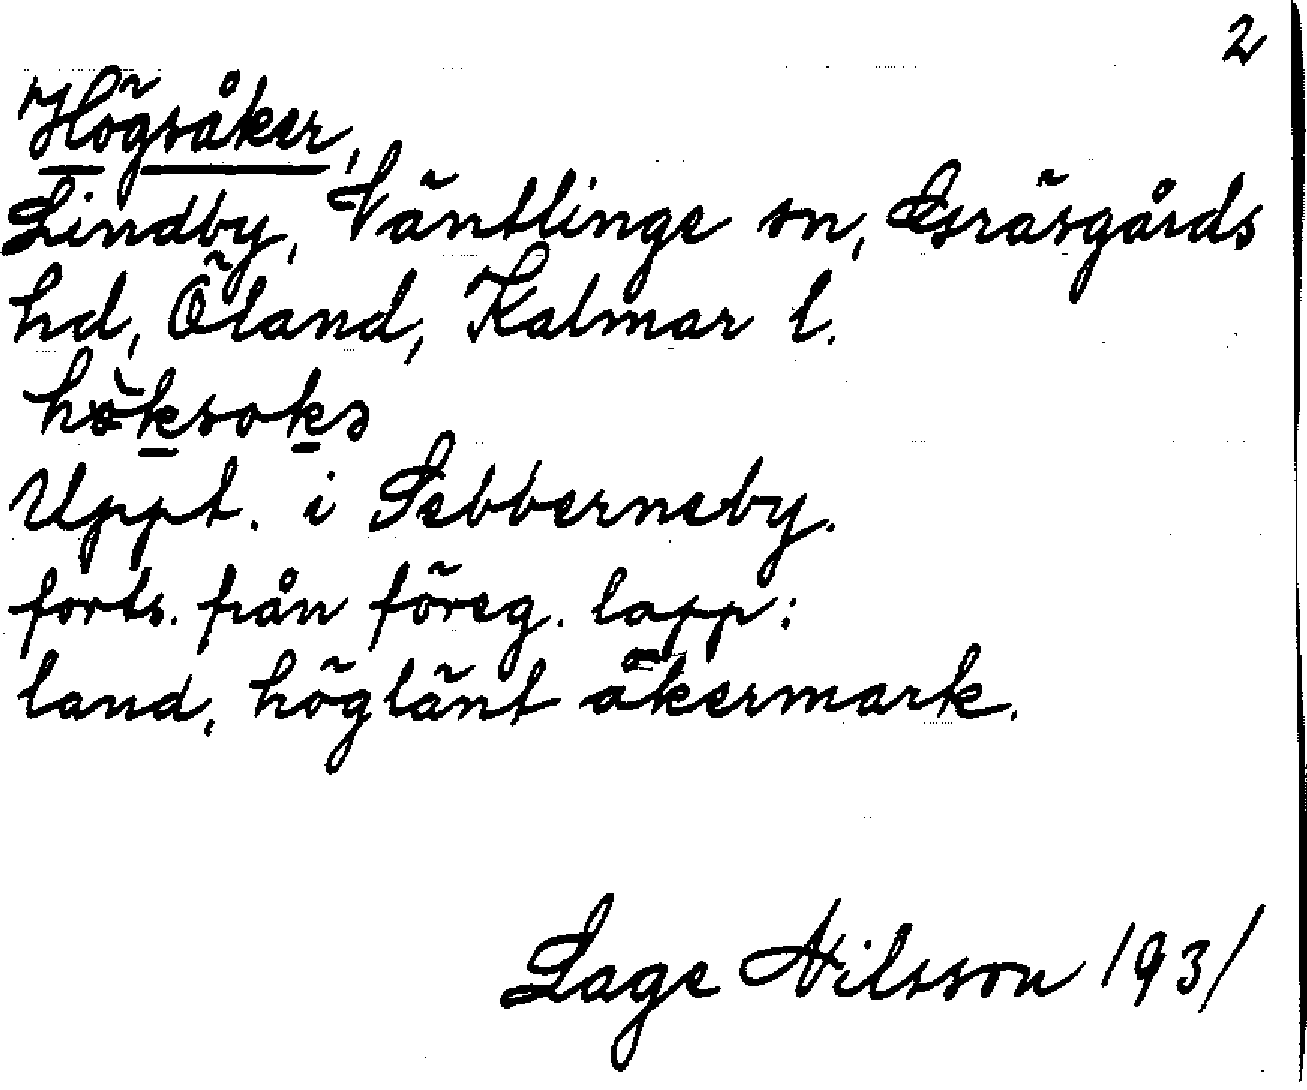 2
Högsåker,
Lindby, Ventlinge sn, Gräsgårds
hd, Öland, Kalmar l.
Uppt. i Sebberneby.
forts. från föreg. lapp:
land, höglänt åkermark.
Lage Nilsson 1931